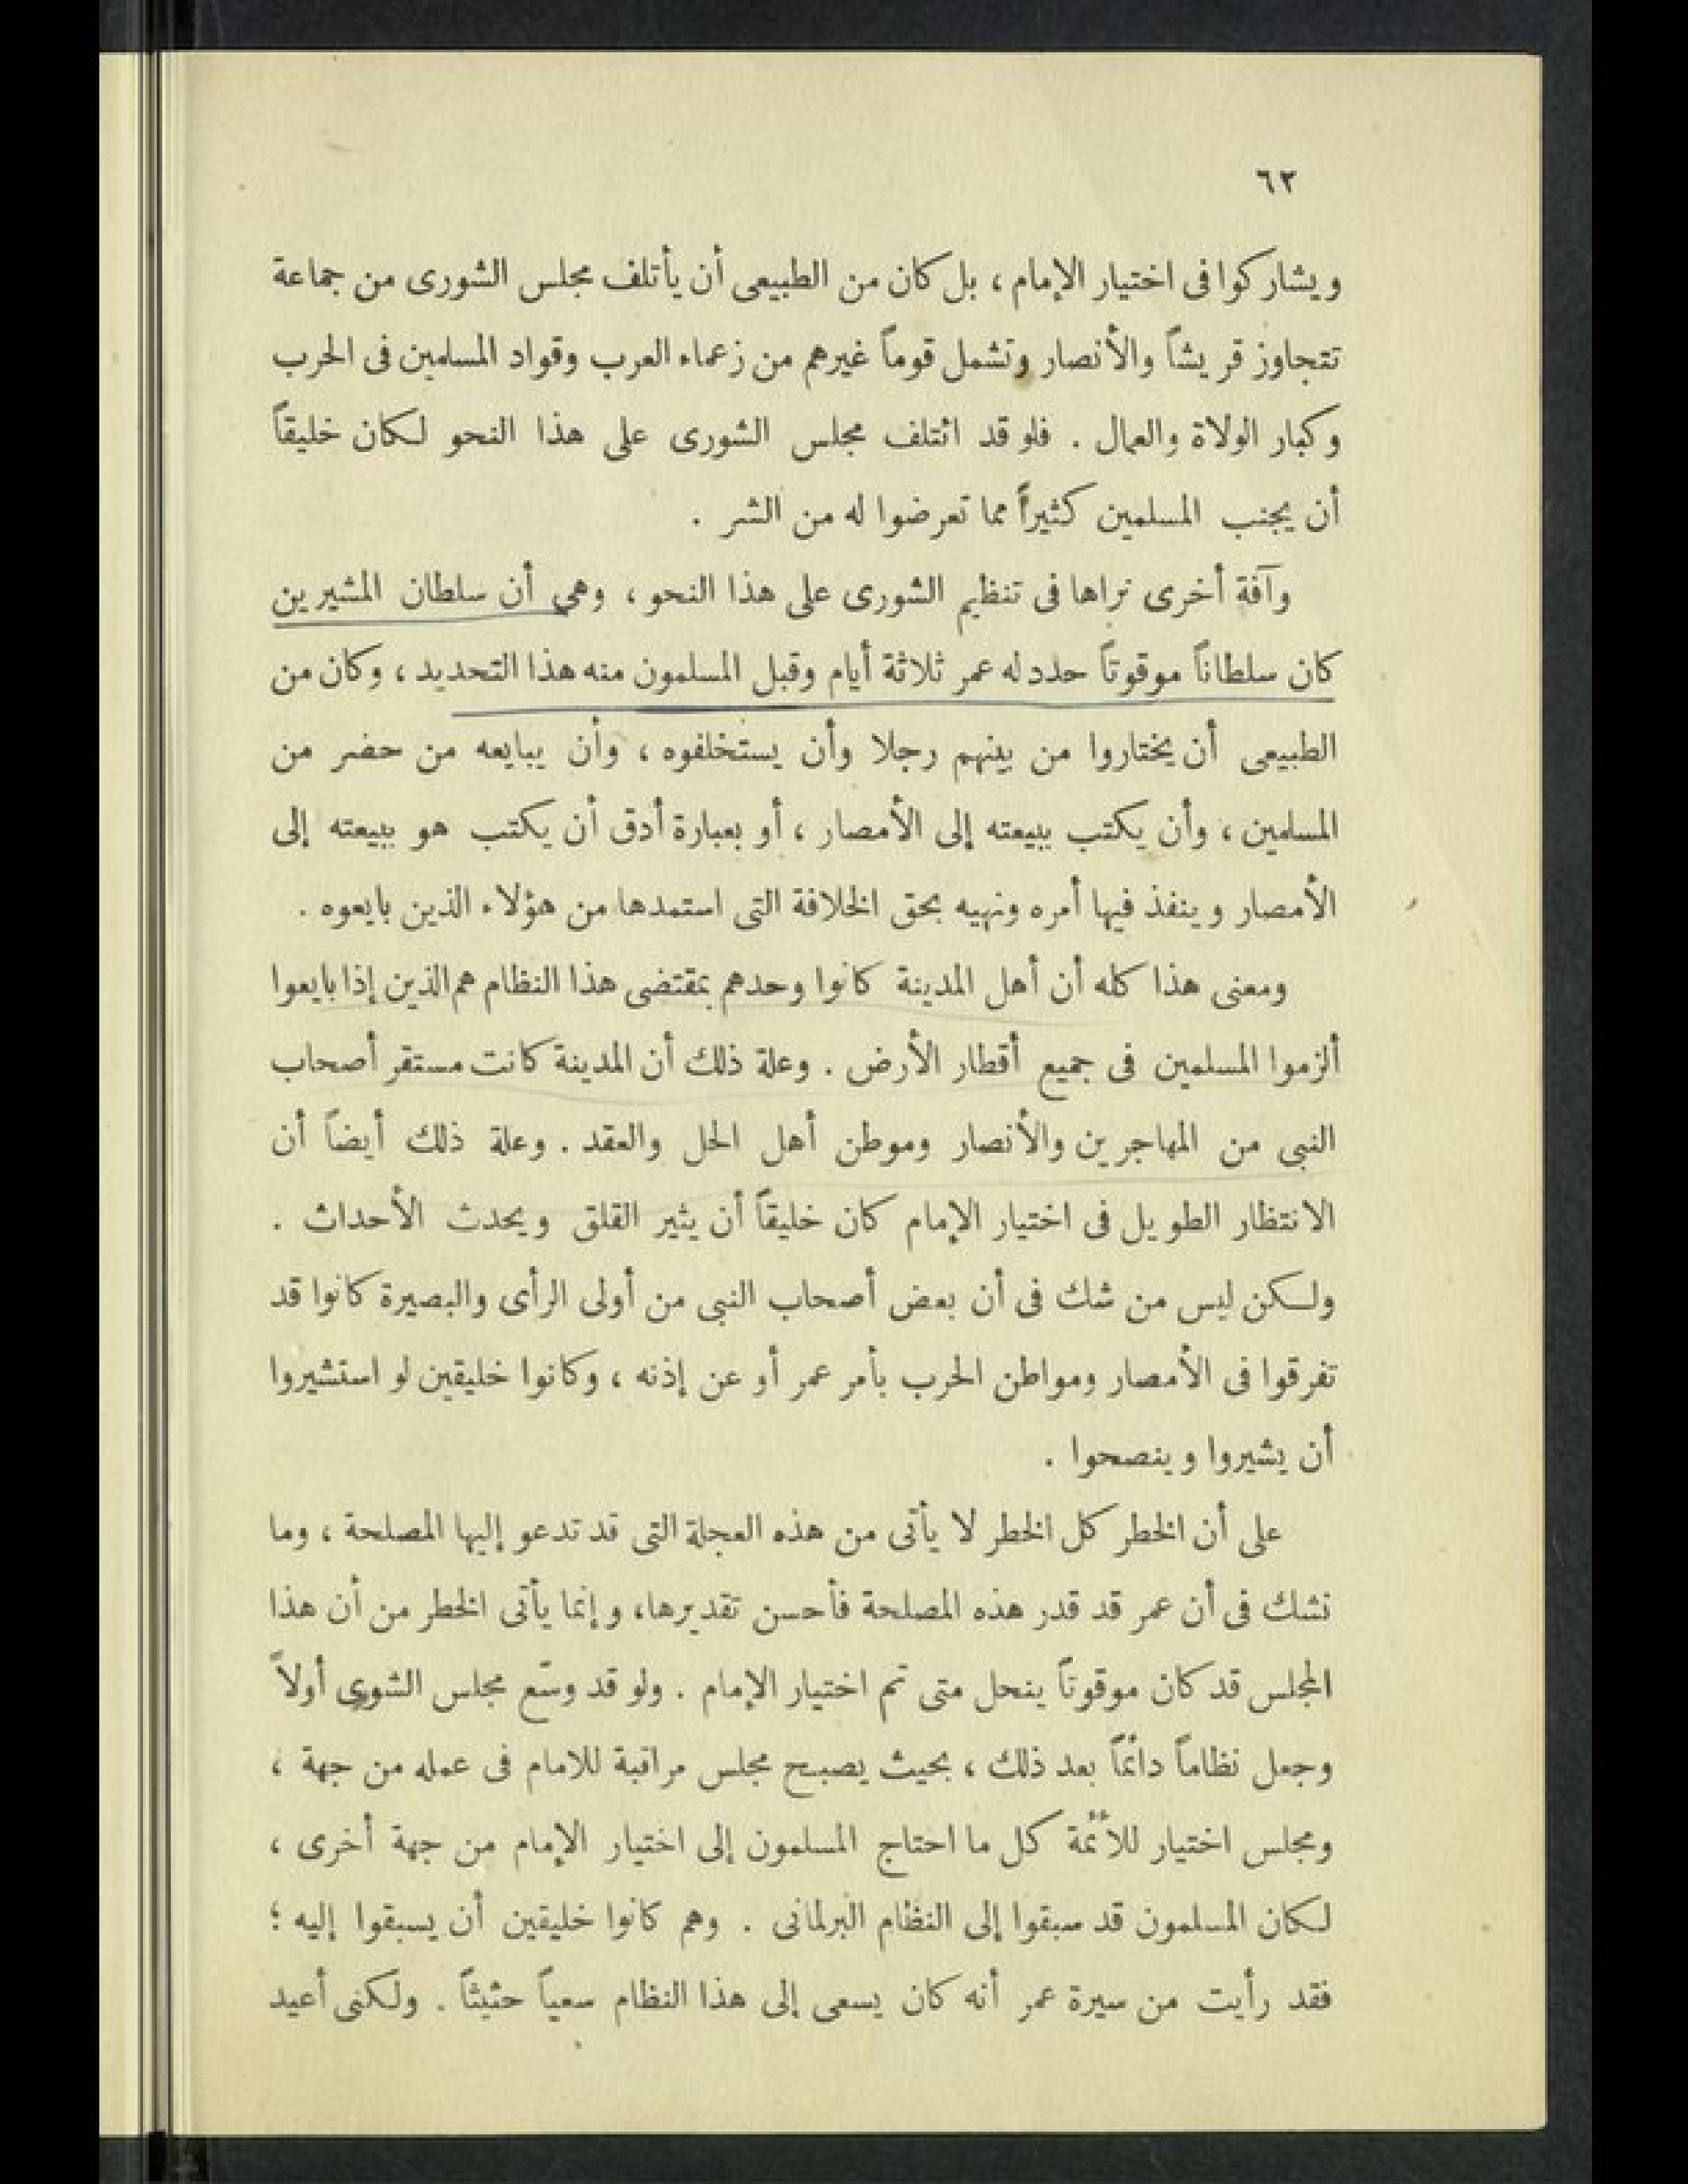 ٦٢
ويشاركوا فى اختيار الإمام ، بل كان من الطبيعى أن يأتلف مجلس الشورى من جماعة
تتجاوز قريشاً والأنصار وتشمل قوماً غيرهم من زعماء العرب وقواد المسلمين فى الحرب
وكبار الولاة والعمال . فلو قد ائتلف مجلس الشورى على هذا النحو لكان خليقاً
أن يجنب المسلمين كثيراً مما تعرضوا له من الشر .
وآفة أخرى نراها فى تنظيم الشورى على هذا النحو ، وهى أن سلطان المشيرين
كان سلطاناً موقوتاً حدد له عمر ثلاثة أيام وقبل المسلمون منه هذا التحديد ، وكان من
الطبيعى أن يختاروا من بينهم رجلا وأن يستخلفوه ، وأن يبايعه من حضر من
المسلمين ، وأن يكتب ببيعته إلى الأمصار ، أو بعبارة أدق أن يكتب هو ببيعته إلى
الأمصار وينفذ فيها أمره ونهيه بحق الخلافة التى استمدها من هؤلاء الذين بايعوه .
ومعنى هذا كله أن أهل المدينة كانوا وحدهم بمقتضى هذا النظام هم الذين إذا بايعوا
ألزموا المسلمين فى جميع أقطار الأرض . وعلة ذلك أن المدينة كانت مستقر أصحاب
النبى من المهاجرين والأنصار وموطن أهل الحل والعقد . وعلة ذلك أيضاً أن
الانتظار الطويل فى اختيار الإمام كان خليقاً أن يثير القلق ويحدث الأحداث .
ولكن ليس من شك فى أن بعض أصحاب النبى من أولى الرأى والبصيرة كانوا قد
تفرقوا فى الأمصار ومواطن الحرب بأمر عمر أو عن إذنه ، وكانوا خليقين لو استشيروا
أن يشيروا وينصحوا .
على أن الخطر كل الخطر لا يأتى من هذه العجلة التى قد تدعو إليها المصلحة ، وما
نشك فى أن عمر قد قدر هذه المصلحة فأحسن تقديرها، وإنما يأتى الخطر من أن هذا
المجلس قد كان موقوتاً ينحل متى تم اختيار الإمام . ولو قد وسّع مجلس الشورى أولاً
وجعل نظاماً دائماً بعد ذلك ، بحيث يصبح مجلس مراقبة للامام فى عمله من جهة ،
ومجلس اختيار للأئمة كل ما احتاج المسلمون إلى اختيار الإمام من جهة أخرى ،
لكان المسلمون قد سبقوا إلى النظام البرلمانى . وهم كانوا خليقين أن يسبقوا إليه ؛
فقد رأيت من سيرة عمر أنه كان يسعى إلى هذا النظام سعياً حثيثاً . ولكنى أعيد